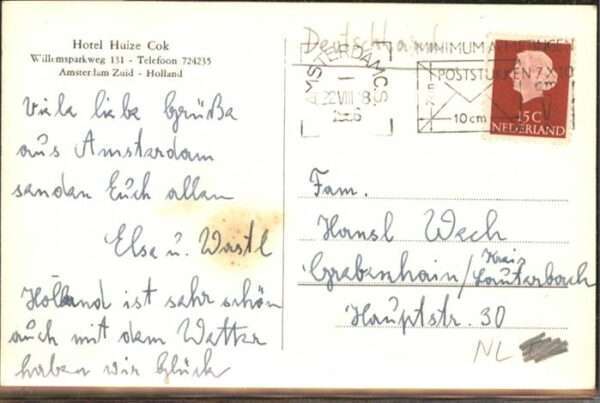 Hotel Huize Cok
Willemsparkweg 131 - Telefoon 724235
Amsterdam Zuid - Holland
Viele liebe Grüße
aus Amsterdam
senden Euch allen
Else u. Wastl
Holland ist sehr schön
auch mit dem Wetter
haben wir Glück
Deutschland
AMSTERDAM C.S.
22 VIII 18
MINIMUM AFMETINGEN
POSTSTUKKEN 7 X 10
cm
7cm
10 cm
15 C
NEDERLAND
Fam.
Hansl Wech
Grebenhain / Kreis
Lauterbach
Hauptstr. 30
NL